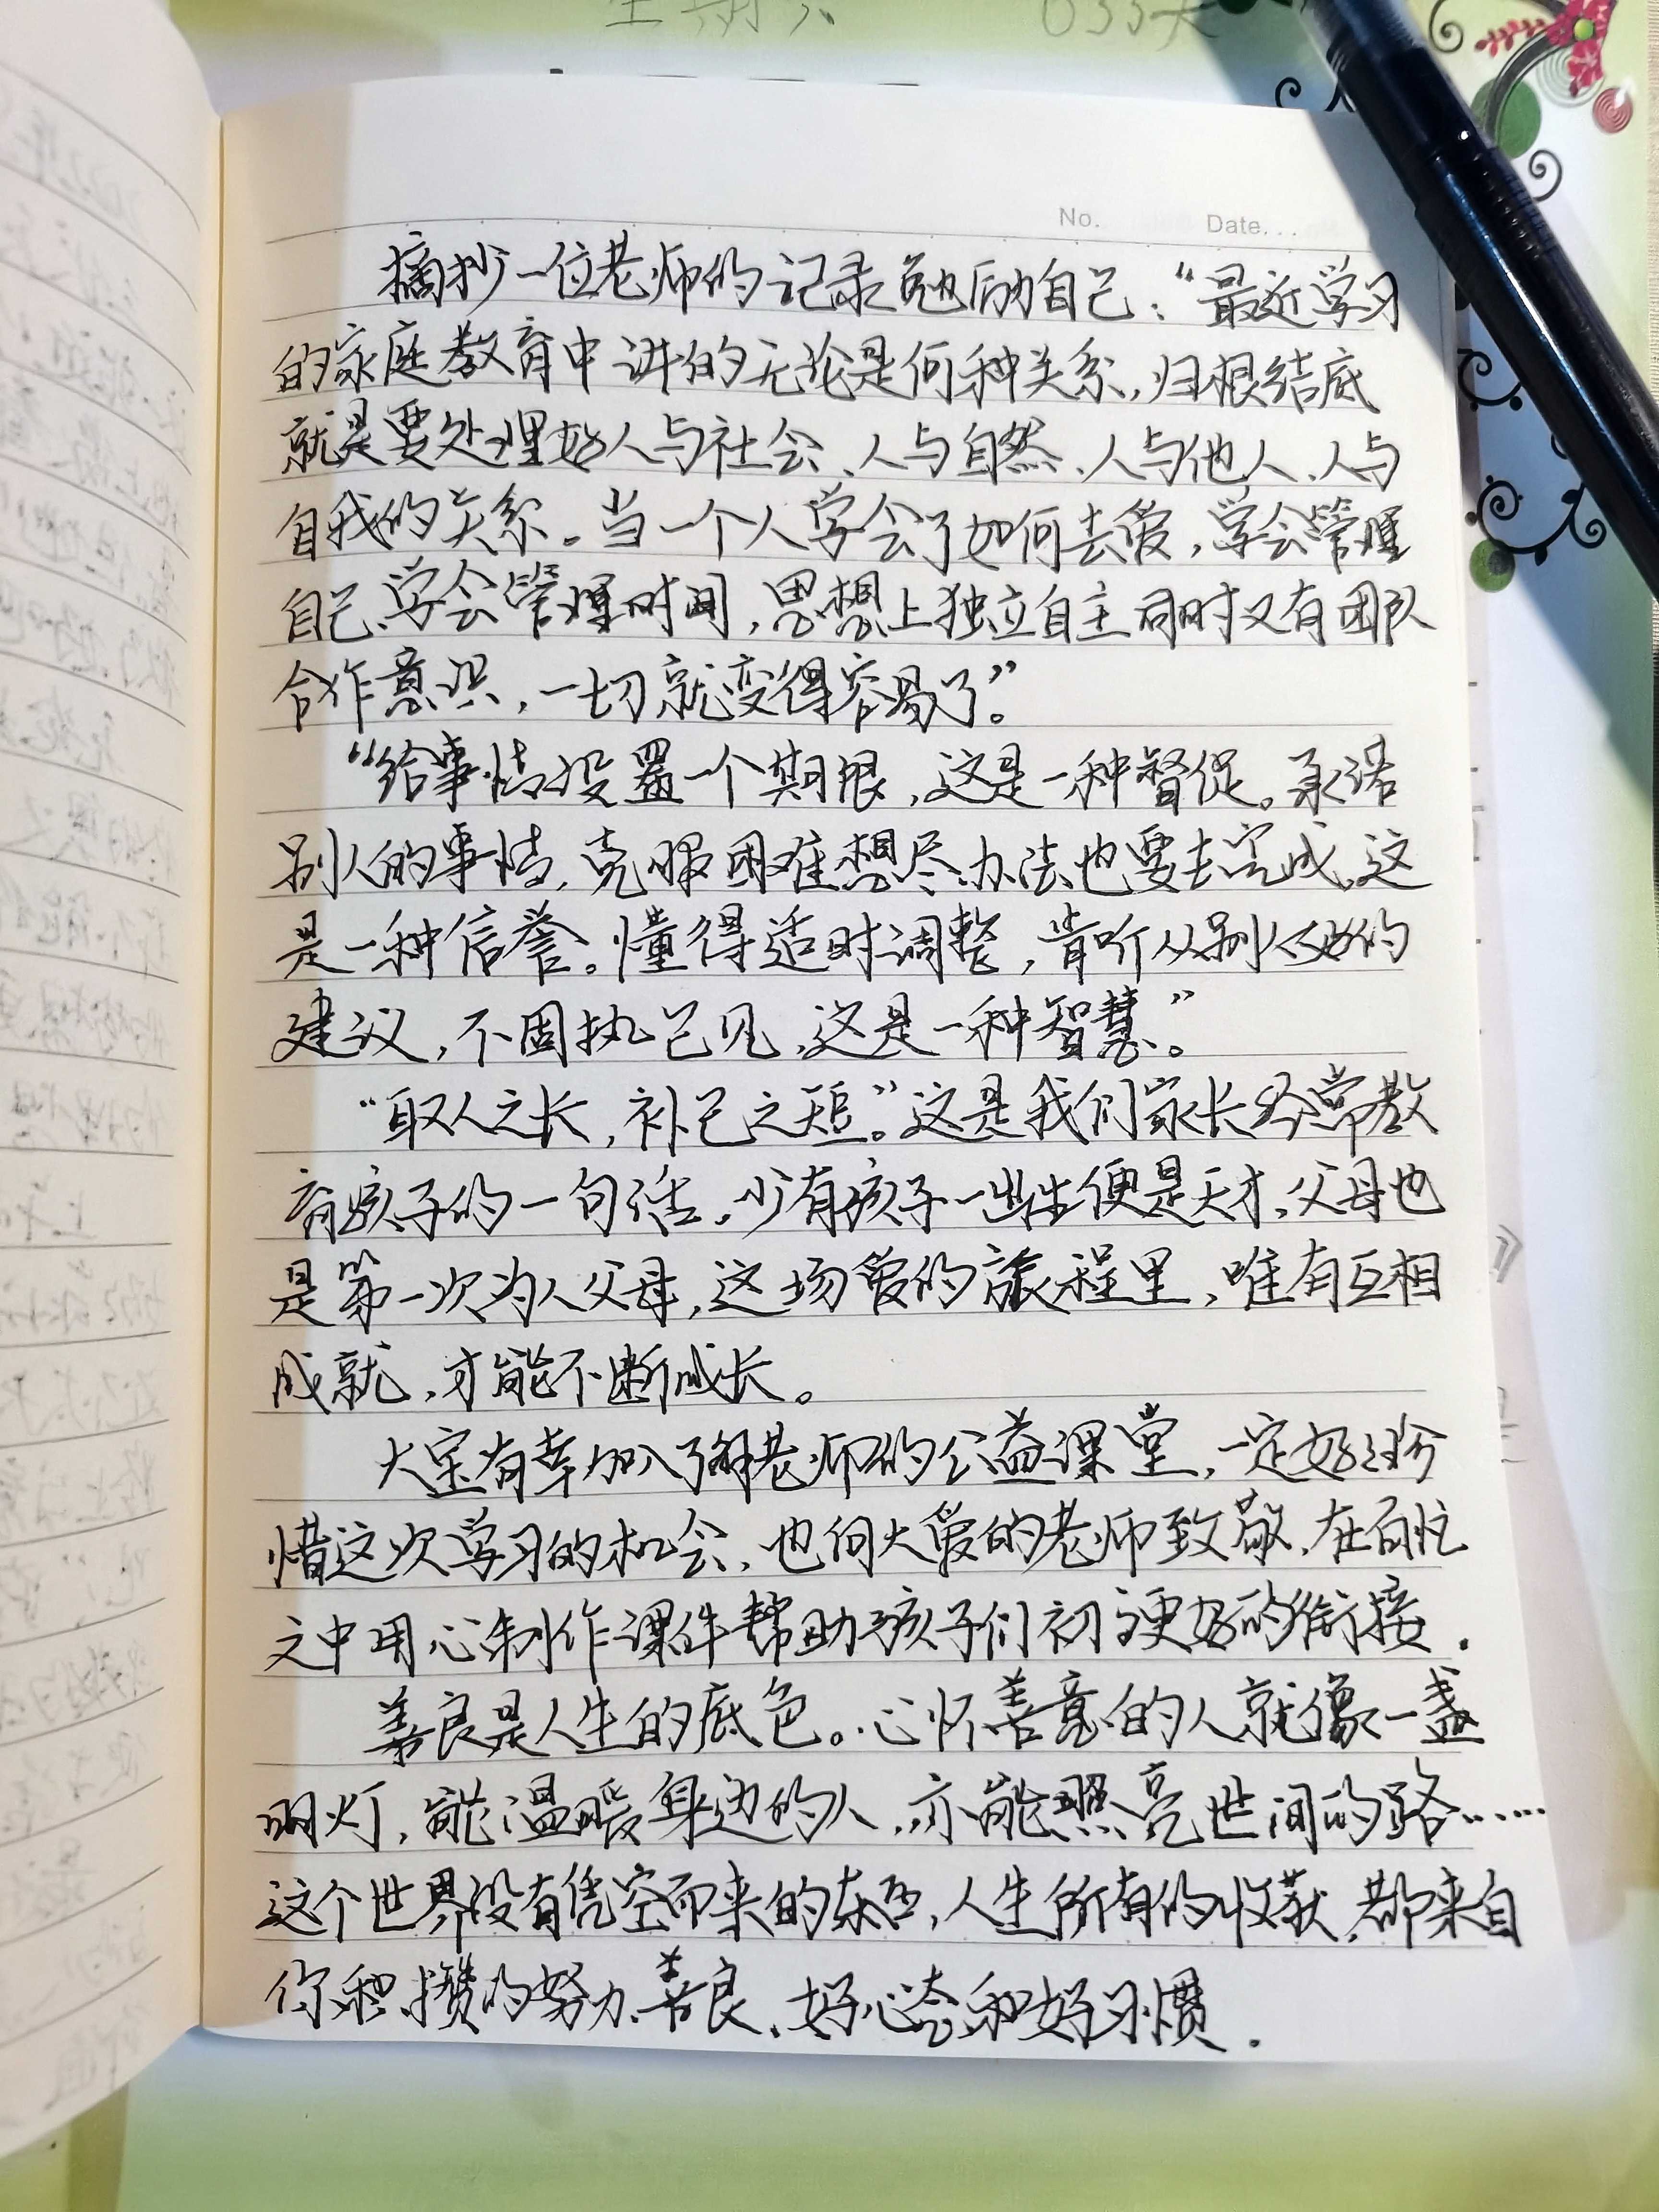 No.    Date...
摘抄一位老师的记录勉励自己："最近学习
的家庭教育中讲的无论是何种关系,归根结底
就是要处理好人与社会、人与自然、人与他人、人与
自我的关系。当一个人学会了如何去爱,学会管理
自己、学会管理时间,思想上独立自主同时又有团队
合作意识,一切就变得容易了"。
"给事情设置一个期限,这是一种督促。承诺
别人的事情,克服困难想尽办法也要去完成,这
是一种信誉。懂得适时调整,肯听从别人好的
建议,不固执己见,这是一种智慧"。
"取人之长,补己之短"。这是我们家长经常教
育孩子的一句话。少有孩子一出生便是天才,父母也
是第一次为人父母,这场爱的旅程里,唯有互相
成就,才能不断成长。
大宝有幸加入了老师的公益课堂,一定好好珍
惜这次学习的机会,也向大爱的老师致敬,在百忙
之中用心制作课件帮助孩子们初高更好的衔接.
善良是人生的底色。心怀善意的人就像一盏
明灯,能温暖身边的人,亦能照亮世间的路……
这个世界没有凭空而来的东西,人生所有的收获,都来自
你积攒的努力、善良、好心态和好习惯.